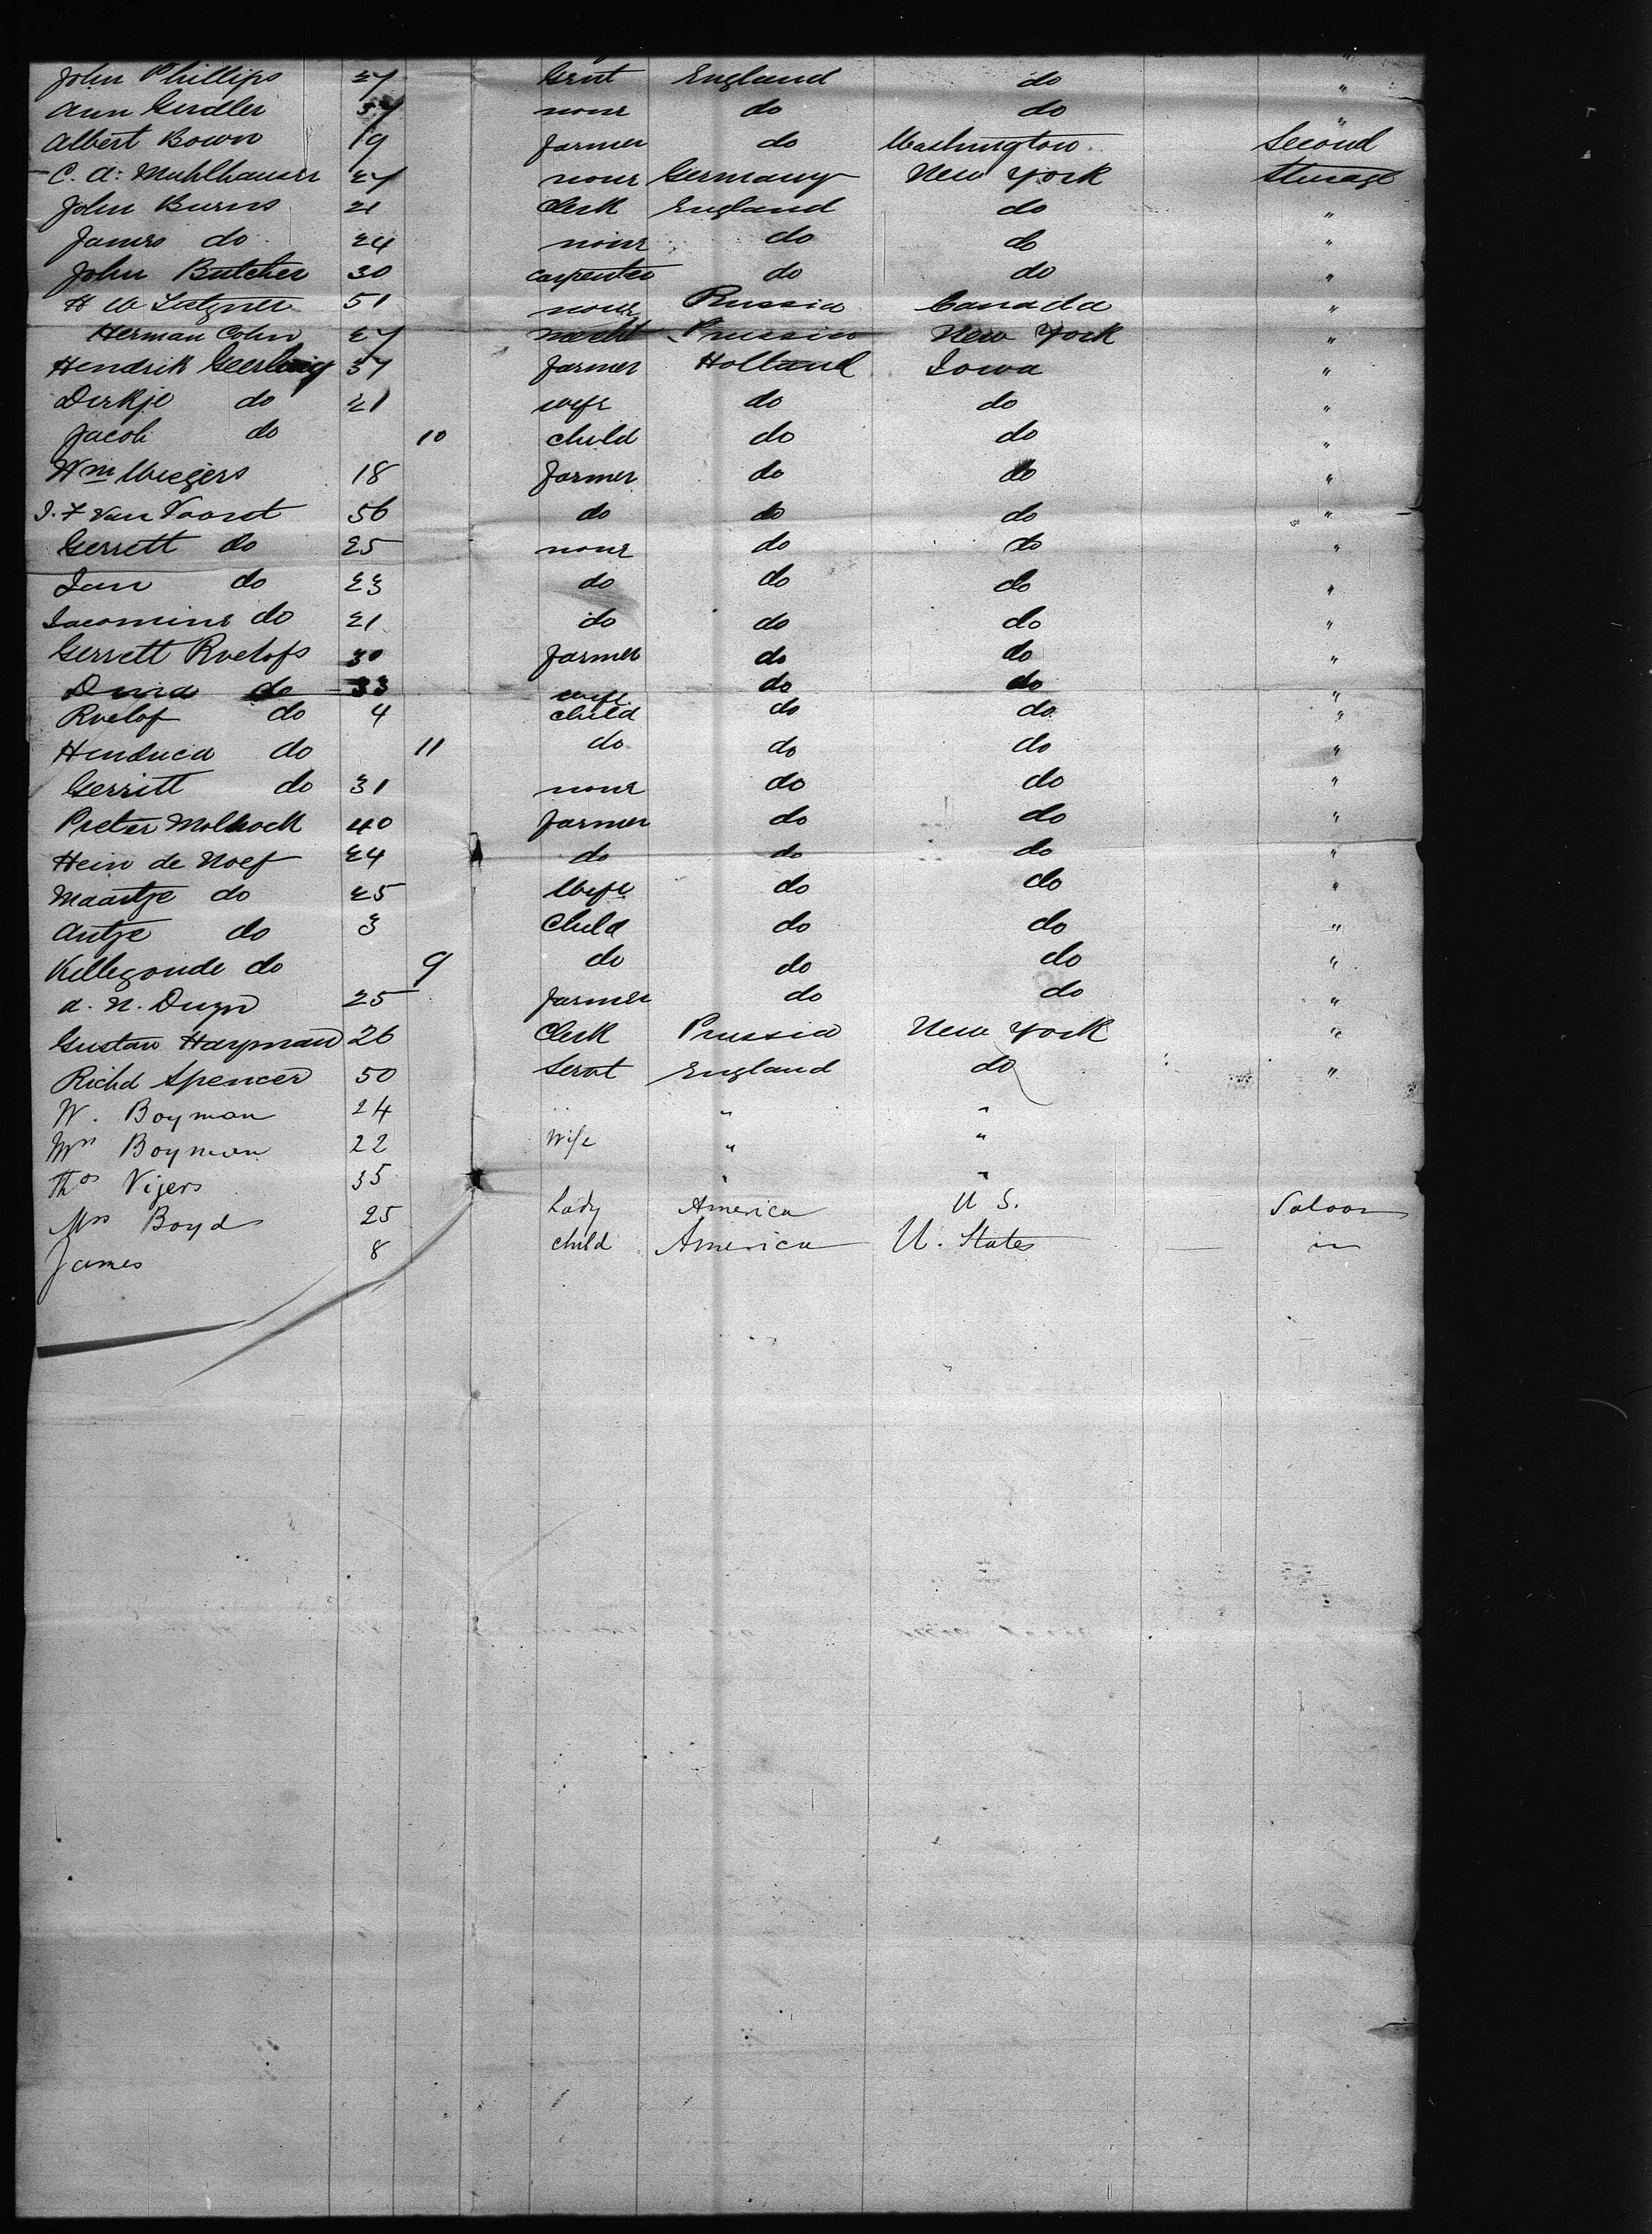 John Phillips 27 Gent England do "
Ann Gerdler 37 none do do "
Albert Bown 19 farmer do Washington Second
C. A. Muhlhauser 27 none Germany New York Sterage
John Burns 21 Clerk England do "
James do 24 none do do "
John Butcher 30 carpenter do do "
H W 51 none Russia Canada "
Herman Cohn 27 mercht Prussia New York "
Hendrik Geerling 37 farmer Holland Iowa "
Dirkje do 21 wife do do "
Jacob do 10 child do do "
Wm Wiegers 18 farmer do do "
J. F Van Voorst 56 do do do "
Gerrett do 25 none do do "
Jan do 23 do do do "
Jacomine do 21 do do do "
Gerrett Roelofs 30 farmer do do "
do 33 wife do do "
Roelof do 4 child do do "
Hendrica do 11 do do do "
Gerritt do 31 none do do "
Pieter Molhoek 40 farmer do do "
Hein de Hoef 24 do do do "
Maartje do 25 Wife do do "
Antje do 3 Child do do "
Killegonde do 9 do do do "
A. N. Duyn 25 farmer do do "
Gustav Hayman 26 Clerk Prussia New York "
Richd Spencer 50 Servt England do "
W. Boyman 24 " " "
Mrs Boyman 22 Wife " "
Thos Vijers 35 " "
Mrs Boyd 25 Lady America U S. Saloon
James 8 child America U. States — in